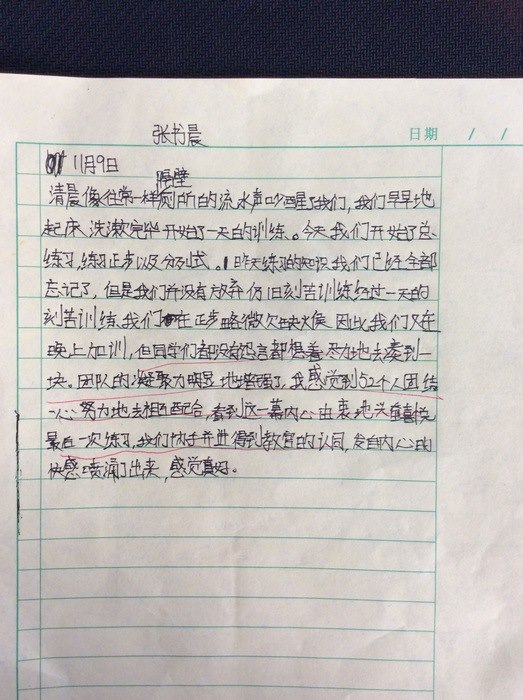 张书晨
日期 / /
11月9日
隔壁
清晨像往常一样厕所的流水声吵醒了我们，我们早早地
起床，洗漱完毕开始了一天的训练。今天我们开始了总
练习，练习正步以及分列式。昨天练习的知识我们已经全部
忘记了，但是我们并没有放弃仍旧刻苦训练经过一天的
刻苦训练，我们在正步略微欠缺火候因此我们又在
晚上加训，但同学们都没有怨言都想着尽力地去凑到一
块。团队的凝聚力明显地增强了，我感觉到52个人团结
一心努力地去相互配合，看到这一幕内心由衷地兴奋喜悦
最后一次练习，我们终于并进得到教官的认同，发自内心的
快感喷涌了出来，感觉真好。